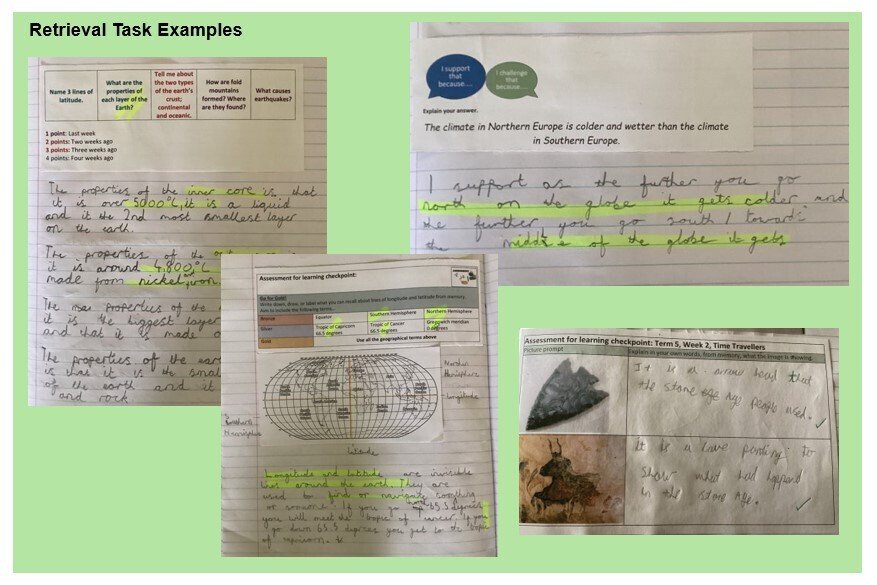 Retrieval Task Examples
Name 3 lines of latitude.
What are the properties of each layer of the Earth?
Tell me about the two types of the earth's crust; continental and oceanic.
How are fold mountains formed? Where are they found?
What causes earthquakes?
1 point: Last week
2 points: Two weeks ago
3 points: Three weeks ago
4 points: Four weeks ago
The properties of the inner core is that
it is over 5000°C, it is a liquid
and it the 2nd most smallest layer
on the earth.
The properties of the
it is around 4,800°C
made from nickel, iron
The properties of the
it is the biggest layer
and that it is made
The properties of the
is that it is the
of the earth and it
and rock.
I support that because....
I challenge that because....
Explain your answer.
The climate in Northern Europe is colder and wetter than the climate
in Southern Europe.
I support as the further you go
north on the globe it gets colder and
the further you go south / towards
the middle of the globe it gets
Assessment for learning checkpoint:
Go for Gold!
Write down, draw, or label what you can recall about lines of longitude and latitude from memory.
Aim to include the following terms...
Bronze Equator Southern Hemisphere Northern Hemisphere
Silver Tropic of Capricorn 66.5 degrees Tropic of Cancer 66.5 degrees Greenwich meridian 0 degrees
Gold Use all the geographical terms above
Northern
Hemisphere
Longitude
Hemisphere
latitude
Longitude and latitude are invisible
lines around the earth. They are
used to find or navigate
or someone. If you go up 65.5 degrees
you will meet the tropic of cancer. If you
go down 65.5 degrees you get to the tropic
of capricorn.
Assessment for learning checkpoint: Term 5, Week 2, Time Travellers
Picture prompt
Explain in your own words, from memory, what the image is showing.
It is a arrow head that
the stone age Age people used.
it is a cave to
Show what had happend
in the stone Age.